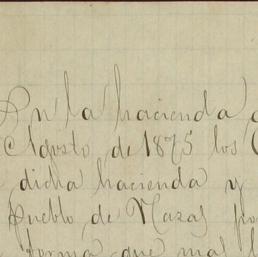 En la hacienda
Agosto de 1875 los
dicha hacienda y
pueblo de Nazas por
forma que mas